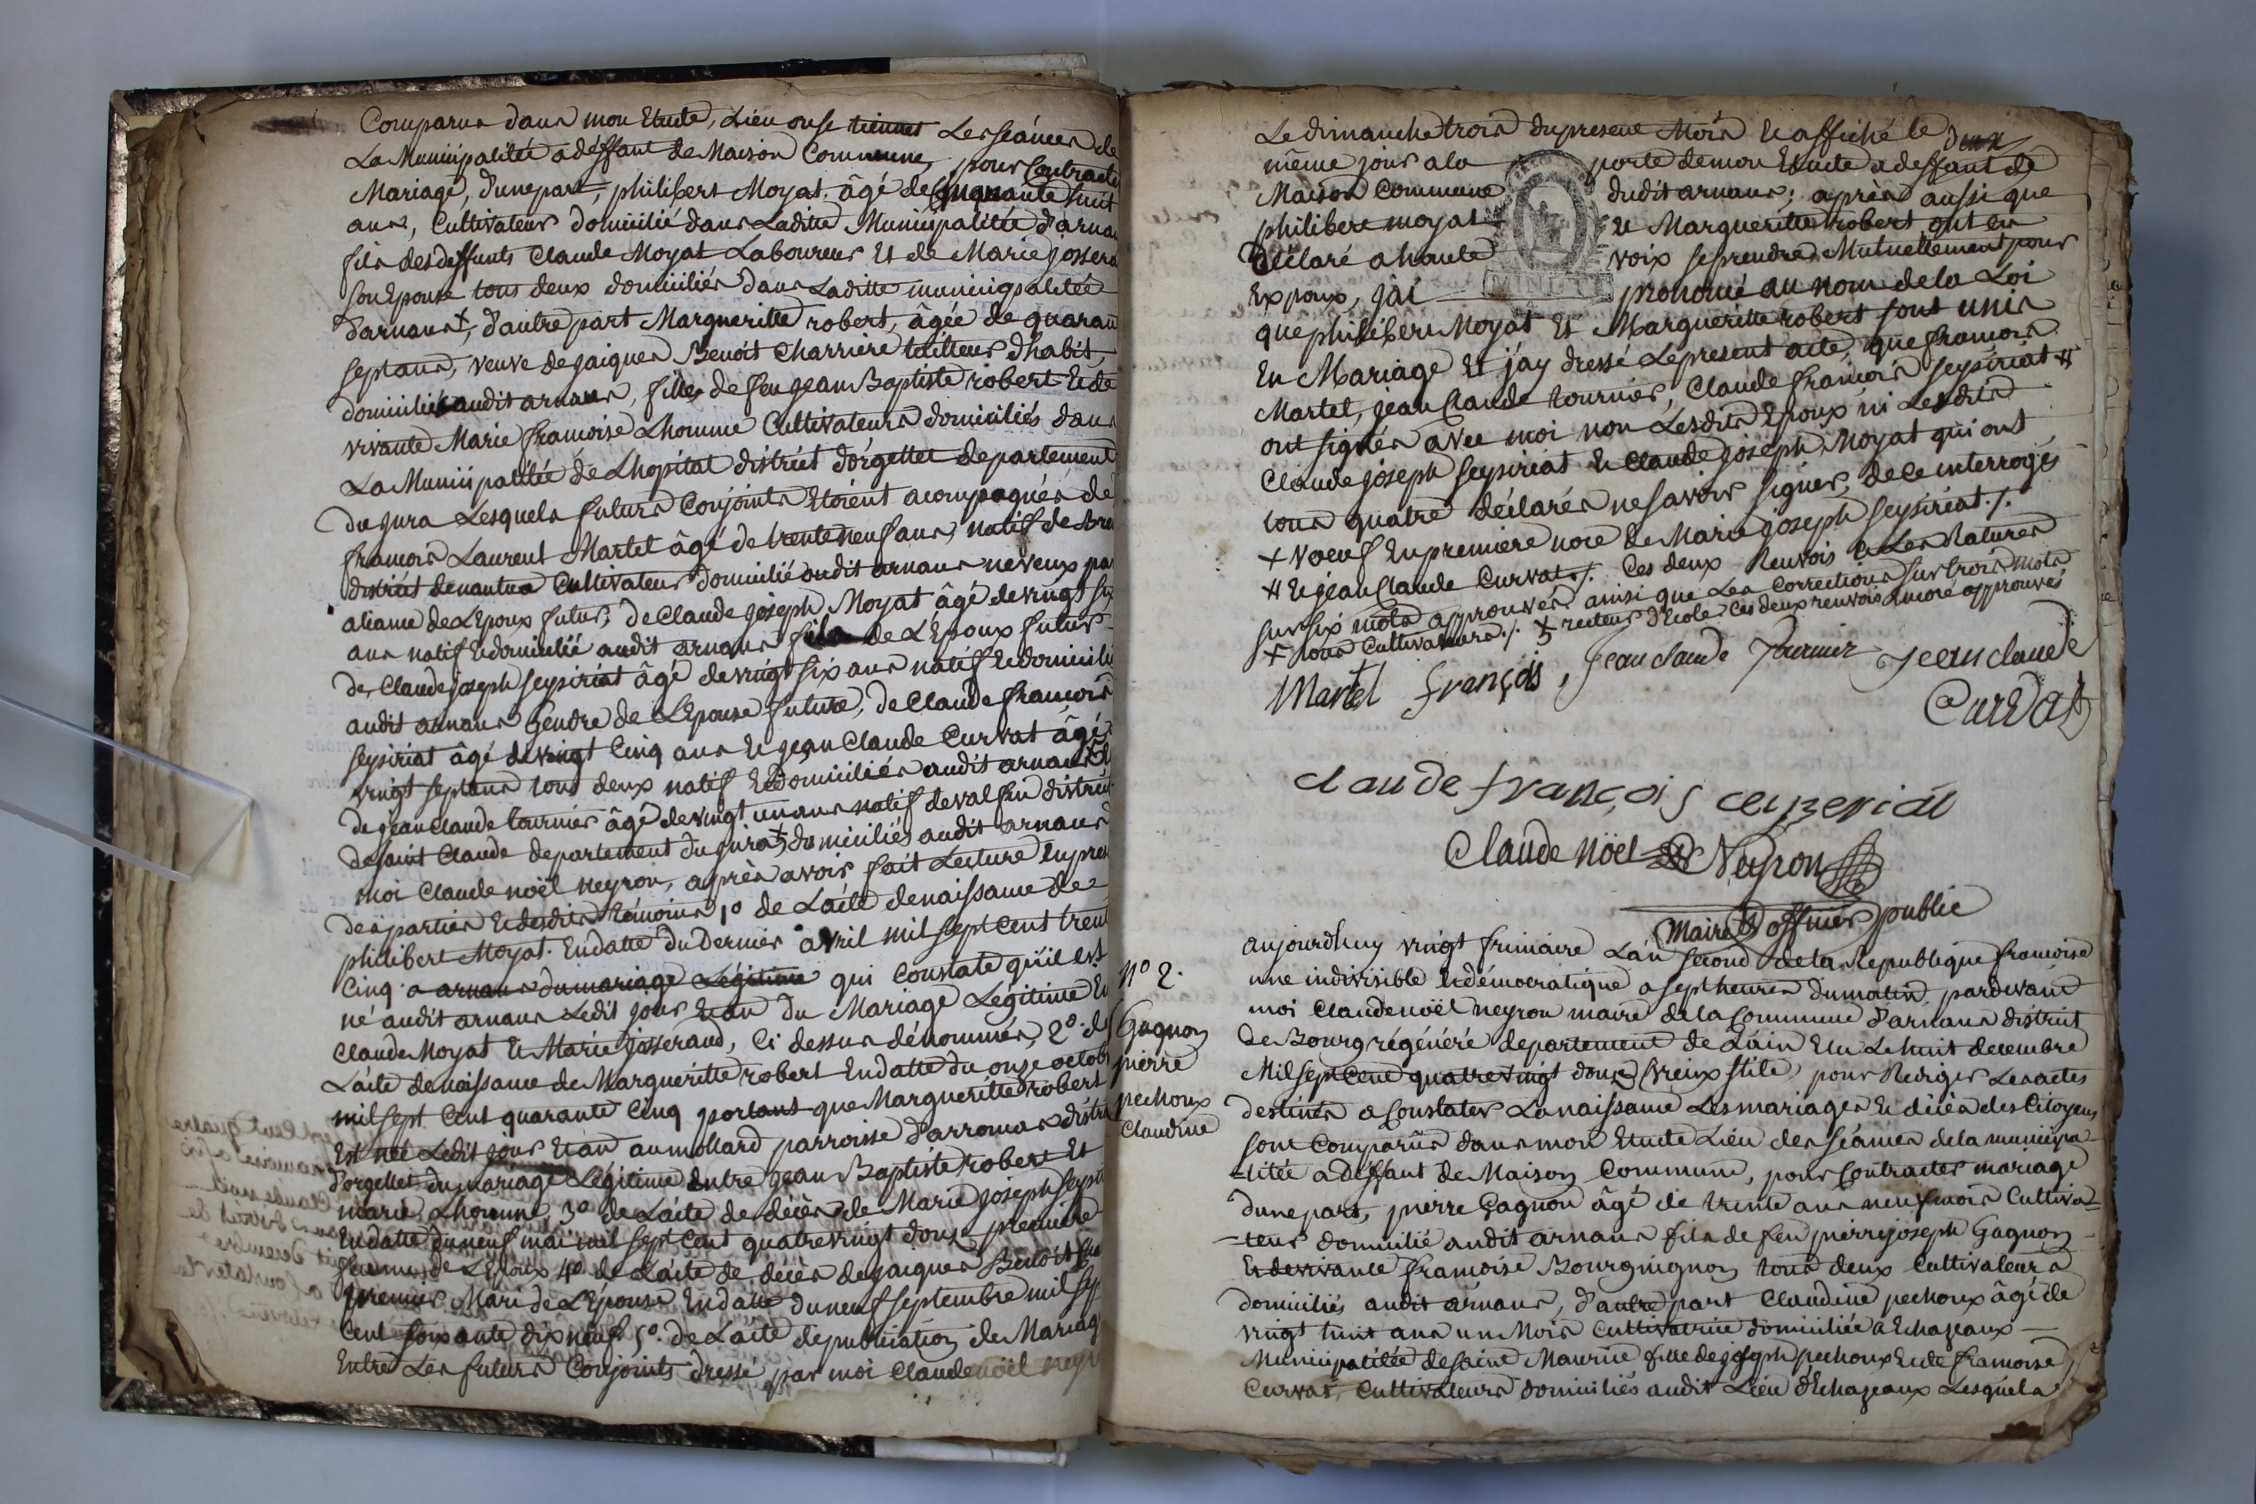 Comparus dans mon Etude, Lieu ou se tiennet Les séances de
La Municipalitée a déffaut de Maison Commune, pour Contracter
Mariage, d'une part, philibert Moyat, âgé de Cinquante huit
ans, Cultivateur domicilié dans Laditte Municipalitée d'arnans
fils des deffunts Claude Moyat Laboureur Et de Marie josserand
son Epouse tous deux domiciliés dans Laditte municipalitée
d'arnans +, d'autre part Margueritte robert, âgée de quarante
sept ans, veuve de jaiques Benoît Charriere tailleur d'habit,
domicilié audit arnans, filles de feu jean Baptiste robert Et de
vivante Marie françoise Lhomme Cultivateurs domiciliés dans
La Municipalitée de Lhopital district d'orgellet departement
du jura Lesquels futurs Conjoints Etoient acompagnés de
françois Laurent Martel âgé de trente neuf ans, natif de
district de nantua Cultivateur domicilié audit arnans neveux par
aliance de L'Epoux futur, de Claude joseph Moyat âgé de vingt six
ans natif Et domicilié audit arnans fils de L'Epoux futur
de Claude joseph seysiriat âgé de vingt six ans natif Et domicilié
audit arnans gendre de L'Epouse future, de Claude françois
seysiriat âgé de vingt Cinq ans Et jean Claude Curvat âgé
vingt sept ans tous deux natif Et domiciliés audit arnans Et
de jean Claude tournier âgé de vingt un ans natif de valfin district
de saint Claude departement du jura domiciliés audit arnans
moi Claude noël neyron, après avoir fait Lecture en presence
des parties Et desdits témoins 1º de L'acte de naissance de
philibert Moyat. En datte du Dernier avril mil sept cent trente
Cinq a arnans du mariage Légitime qui Constate qu'il est
né audit arnans Ledit jour Et an du Mariage Légitime Entre
Claude Moyat Et Marie josserand, Ci dessus dénommés, 2º. de
L'acte de naissance de Margueritte robert En datte du onze octobre
mil sept Cent quarante Cinq portant que Margueritte robert
Est née Ledit jour Et an au mollard parroisse d'arromas district
d'orgellet du mariage Légitime Entre jean Baptiste robert Et
marie Lhomme, 3º de L'acte de décès de Marie joseph seysiriat
En datte du neuf mai mil sept Cent quatre vingt douze premiere
femme de L'Epoux 4º. de L'acte de décès de jaiques Benoît
premier Mari de L'Epouse En datte du neuf septembre mil sept
Cent soixante dix neuf 5º. de L'acte de publication de Mariage
Entre Les futurs Conjoints dressé par moi Claude noël neyron
Le dimanche trois du present Mois Et affiché le Deux
même jour a la porte de mon Etude a deffaut de
Maison Commune dudit arnans; après aussi que
philibert moyat Et Margueritte robert ont En
déclaré a haute voix se prendre Mutuellement pour
Expoux, j'ai pronomcé au nom de la Loi
que philibert Moyat Et Margueritte robert sont unis
En Mariage Et j'ay dressé Le present acte, que françois
Martel, jean Claude tournier, Claude françois seysiriat #
ont signés avec moi non Lesdits Epoux ni Lesdits
Claude joseph seysiriat Et Claude joseph Moyat qui ont
tous quatre déclarés ne savoir signer, de ce interrogés
+ voeuf En premiere noce de Marie joseph seysiriat ./.
# Et jean Claude Curvat ./. Ces deux Renvois Et Les Ratures
sur six mots approuvés ainsi que Les Corrections sur trois mots
+ tous Cultivateurs ./. ‡ recteur d'Ecole. Ces deux renvois Encore approuvés
Martel françois, Jean claude Tournier Jean claude
Curvat
claude françois ceyzeriat
Claude Nöel Neyron
Maire Et officier public
Nº 2.
Gagnon
pierre
pechoux
Claudine
aujourdhuy vingt frimaire L'an second de la Republique françoise
une indivisible Et démocratique a sept heures du matin pardevant
moi Claude noël neyron maire de la Commune d'arnans district
de Bourg régénéré departement de L'ain Elu Le huit decembre
Mil sept Cent quatre vingt douze (vieux stile) pour Rediger Les actes
destinés a Constater La naissance Les mariages Et décès des Citoyens
sont Comparus dans mon Etude Lieu des séances de la municipa-
-litée a deffaut de Maison Commune, pour Contracter mariage
d'une part, pierre Gagnon âgé de trente ans neuf mois Cultiva-
-teur domicilié audit arnans fils de feu pierre joseph Gagnon
Et de vivante françoise Bourguignon tous deux Cultivateurs
domiciliés audit arnans, d'autre part Claudine pechoux âgé de
vingt huit ans un Mois Cultivatrice domiciliée a Echazeaux
Municipalitée de saint Maurice fille de joseph pechoux Et de françoise
Curvat, Cultivateurs domiciliés audit Lieu d'Echazeaux Lesquels